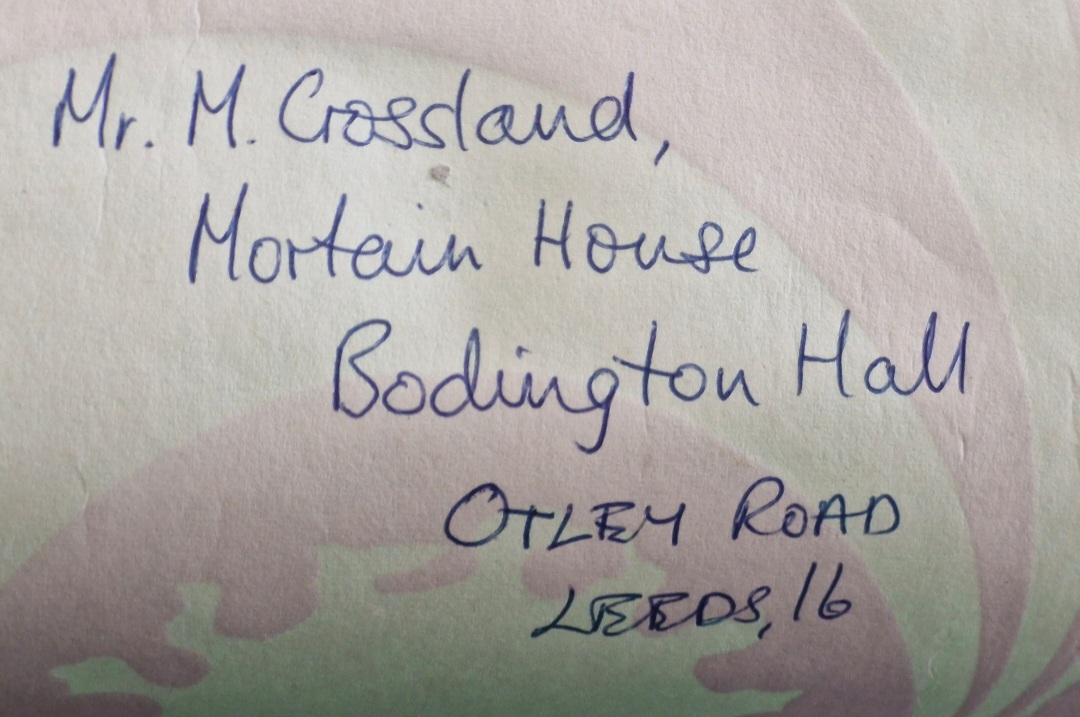 Mr. M. Crossland,
Mortain House
Bodington Hall
OTLEY ROAD
LEEDS, 16